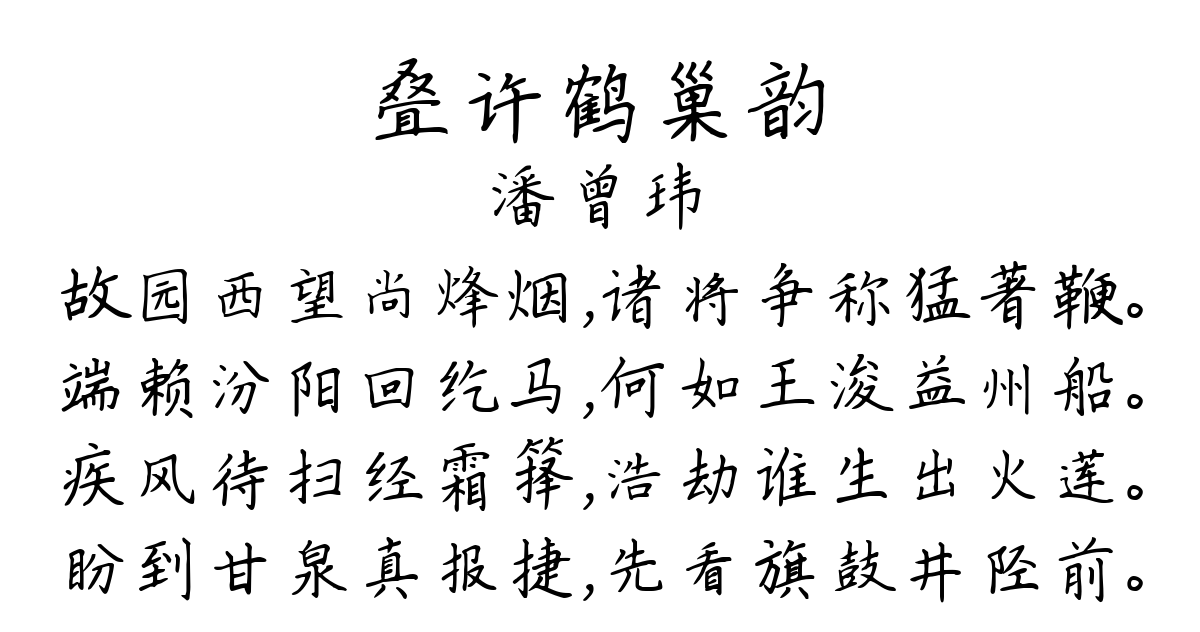 叠许鹤巢韵
潘曾玮
故园西望尚烽烟,诸将争称猛著鞭。
端赖汾阳回纥马,何如王浚益州船。
疾风待扫经霜箨,浩劫谁生出火莲。
盼到甘泉真报捷,先看旗鼓井陉前。